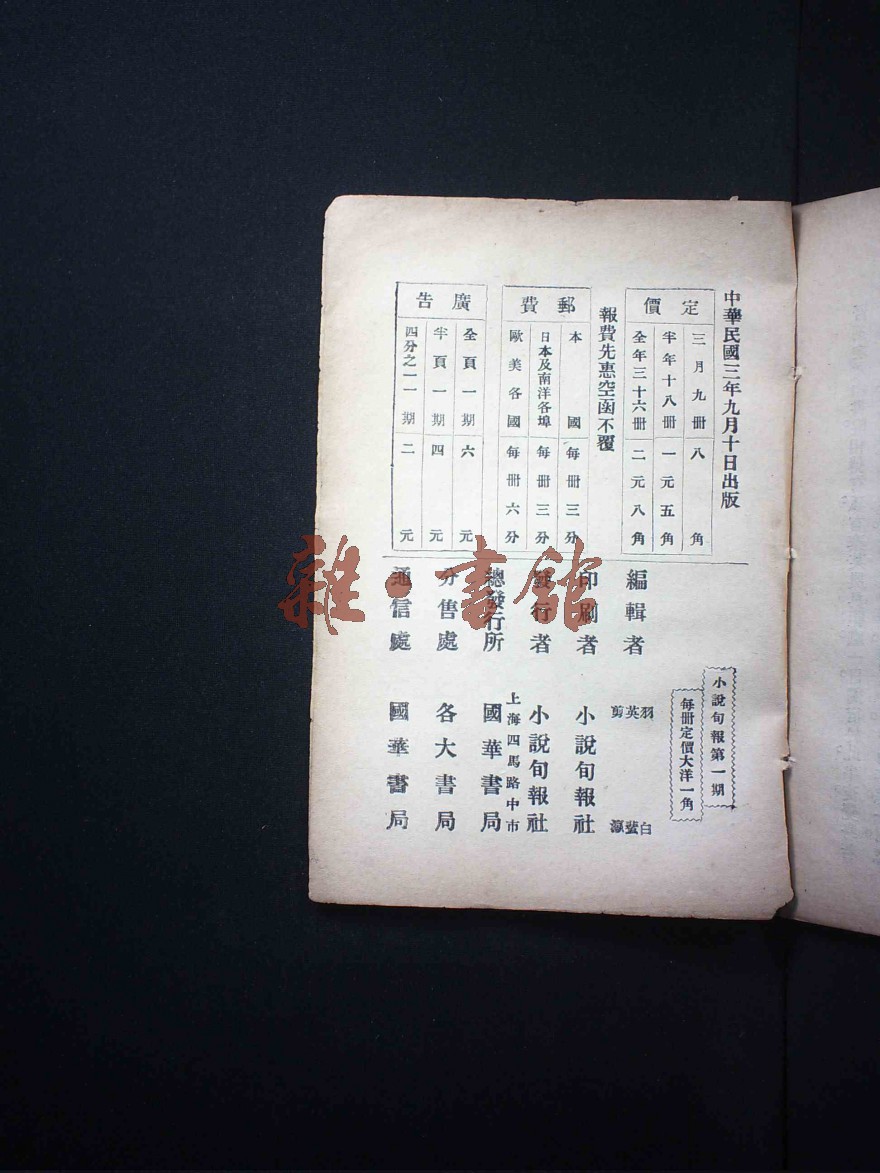 中華民國三年九月十日出版
定價
三月九冊八角
半年十八冊一元五角
全年三十六冊二元八角
報費先惠空函不覆
郵費
本國每冊三分
日本及南洋各埠每冊三分
歐美各國每冊六分
廣告
全頁一期六元
半頁一期四元
四分之一一期二元
小說旬報第一期
每冊定價大洋一角
編輯者
羽白
英蜚
剪瀛
印刷者 小說旬報社
發行者 小說旬報社
上海四馬路中市
總發行所 國華書局
分售處 各大書局
通信處 國華書局
雜·書館